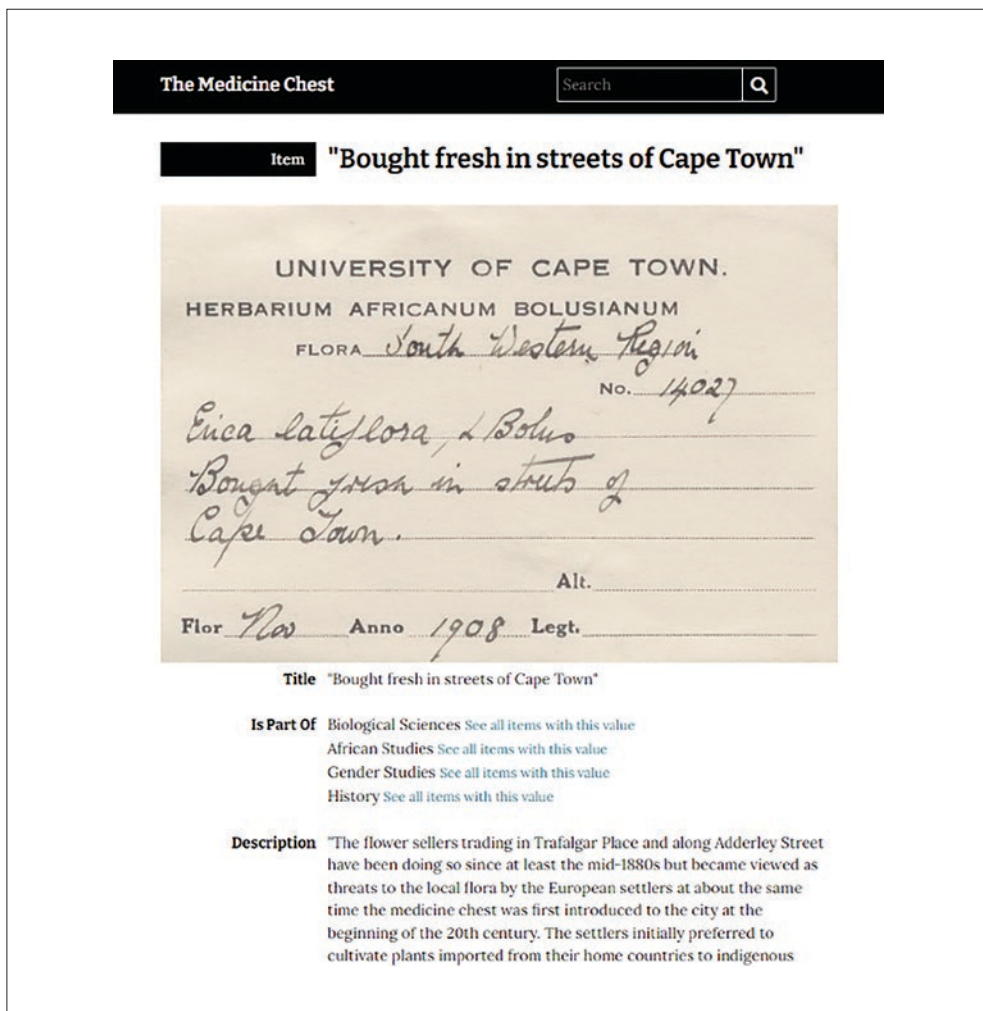 The Medicine Chest
Search
Item "Bought fresh in streets of Cape Town"
UNIVERSITY OF CAPE TOWN.
HERBARIUM AFRICANUM BOLUSIANUM
FLORA South Western Region
No. 14027
Erica latiflora, L Bolus
Bought fresh in streets of
Cape Town.
Alt.
Flor Nov Anno 1908 Legt.
Title "Bought fresh in streets of Cape Town"
Is Part Of Biological Sciences See all items with this value
African Studies See all items with this value
Gender Studies See all items with this value
History See all items with this value
Description "The flower sellers trading in Trafalgar Place and along Adderley Street
have been doing so since at least the mid-1880s but became viewed as
threats to the local flora by the European settlers at about the same
time the medicine chest was first introduced to the city at the
beginning of the 20th century. The settlers initially preferred to
cultivate plants imported from their home countries to indigenous